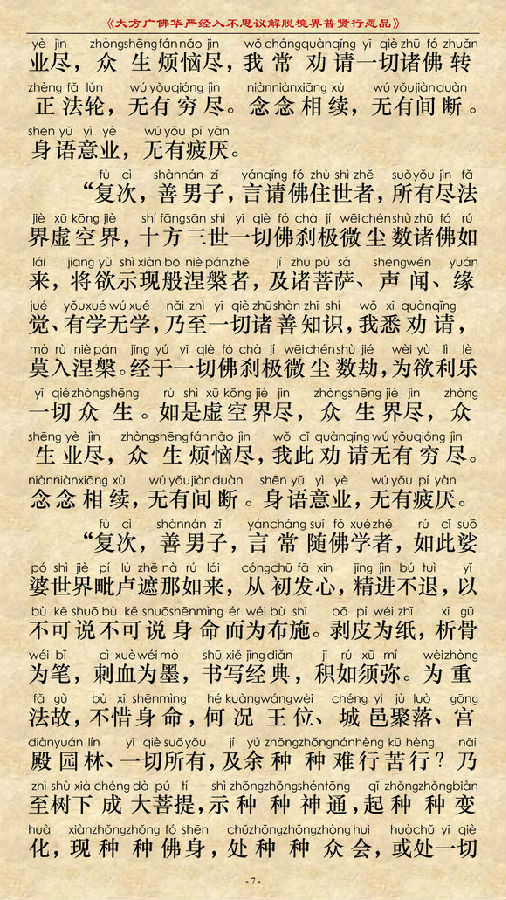 《大方广佛华严经入不思议解脱境界普贤行愿品》
yè jìn zhòngshēngfánnǎo jìn wǒchángquànqǐng yí qiè zhūfó zhuǎn
业尽，众 生烦恼尽，我常 劝请一切诸佛转
zhèng fǎ lún wúyǒuqióng jìn niànniànxiāng xù wúyǒujiànduàn
正法轮，无有穷尽。念念相续，无有间断。
shēn yǔ yì yè wúyǒu pí yàn
身语意业，无有疲厌。
fù cì shànnán zǐ yánqǐng fó zhù shì zhě suǒyǒu jìn fǎ
“复次，善男子，言请佛住世者，所有尽法
jiè xū kōng jiè shí fāngsān shì yí qiè fó chà jí wēichénshù zhū fó rú
界虚空界，十方三世一切佛刹极微尘数诸佛如
lái jiāng yù shì xiàn bō nièpánzhě jí zhū pú sà shēngwén yuán
来，将欲示现般涅槃者，及诸菩萨、声闻、缘
jué yǒuxué wú xué nǎi zhì yí qiè zhūshàn zhī shi wǒ xī quànqǐng
觉、有学无学，乃至一切诸善知识，我悉劝请，
mò rù nièpán jīng yú yí qiè fó chà jí wēichénshù jié wèi yù lì lè
莫入涅槃。经于一切佛刹极微尘数劫，为欲利乐
yí qiè zhòngshēng rú shì xū kōng jiè jìn zhòngshēng jiè jìn zhòng
一切众 生。如是虚空界尽，众生界尽，众
shēng yè jìn zhòngshēngfánnǎo jìn wǒ cǐ quànqǐng wú yǒuqióng jìn
生业尽，众 生烦恼尽，我此劝请无有穷尽。
niànniànxiāng xù wúyǒujiànduàn shēn yǔ yì yè wúyǒu pí yàn
念念相续，无有间断。身语意业，无有疲厌。
fù cì shànnán zǐ yáncháng suí fó xué zhě rú cǐ suō
“复次，善男子，言常随佛学者，如此娑
pó shì jiè pí lú zhē nà rú lái cóngchū fā xīn jīng jìn bú tuì yǐ
婆世界毗卢遮那如来，从初发心，精进不退，以
bù kě shuō bù kě shuōshēnmìng ér wéi bù shī bō pí wéi zhǐ xī gǔ
不可说不可说身命而为布施。剥皮为纸，析骨
wéi bǐ cì xuè wéi mò shū xiě jīng diǎn jī rú xū mí wèi zhòng
为笔，刺血为墨，书写经典，积如须弥。为重
fǎ gù bù xī shēnmìng hé kuàngwángwèi chéng yì jù luò gōng
法故，不惜身命，何况王位、城邑聚落、宫
diànyuán lín yí qiè suǒyǒu jí yú zhǒngzhǒngnánhèng kǔ hèng nǎi
殿园林、一切所有，及余种种难行苦行？乃
zhì shù xià chéng dà pú tí shì zhǒngzhǒngshéntōng qǐ zhǒngzhǒngbiàn
至树下成大菩提，示种种神通，起种种变
huà xiànzhǒngzhǒng fó shēn chǔzhǒngzhǒngzhòng huì huòchǔ yí qiè
化，现种种佛身，处种种众会，或处一切
- 7 -